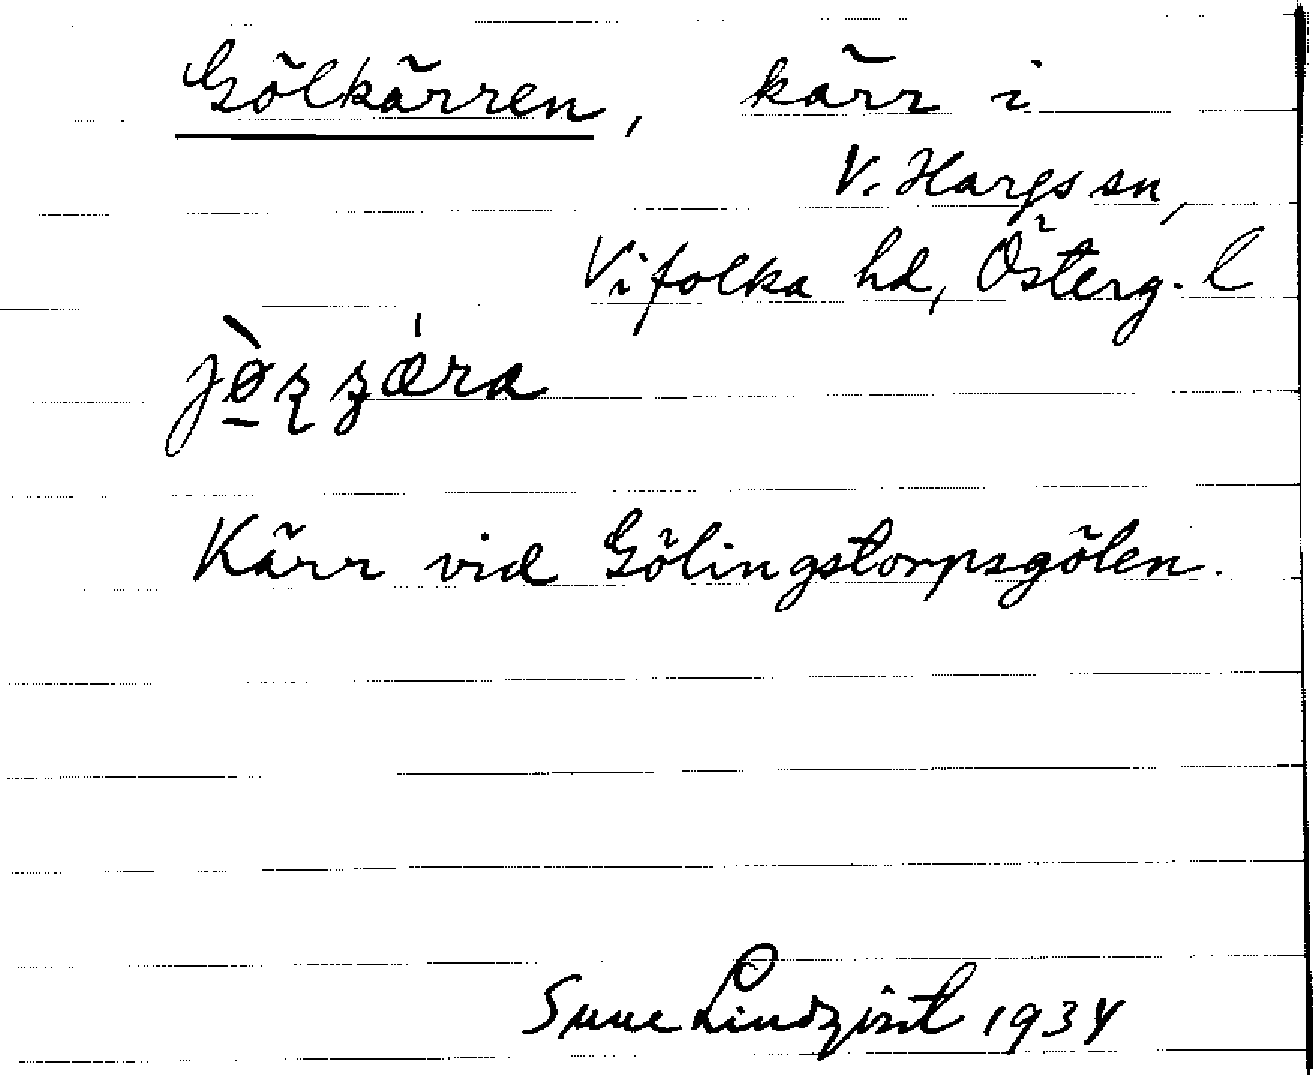 Gölkärren, kärr i
V. Hargs sn,
Vifolka hd, Österg. l
Kärr vid Gölingstorpsgölen.
Sune Lindqvist 1934